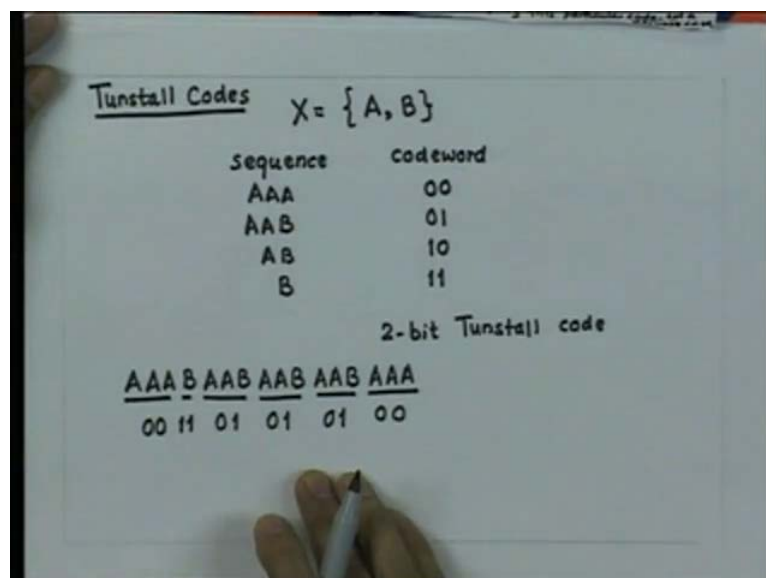 Tunstall Codes X = {A, B}
sequence codeword
AAA 00
AAB 01
AB 10
B 11
2-bit Tunstall code
AAA B AAB AAB AAB AAA
00 11 01 01 01 00